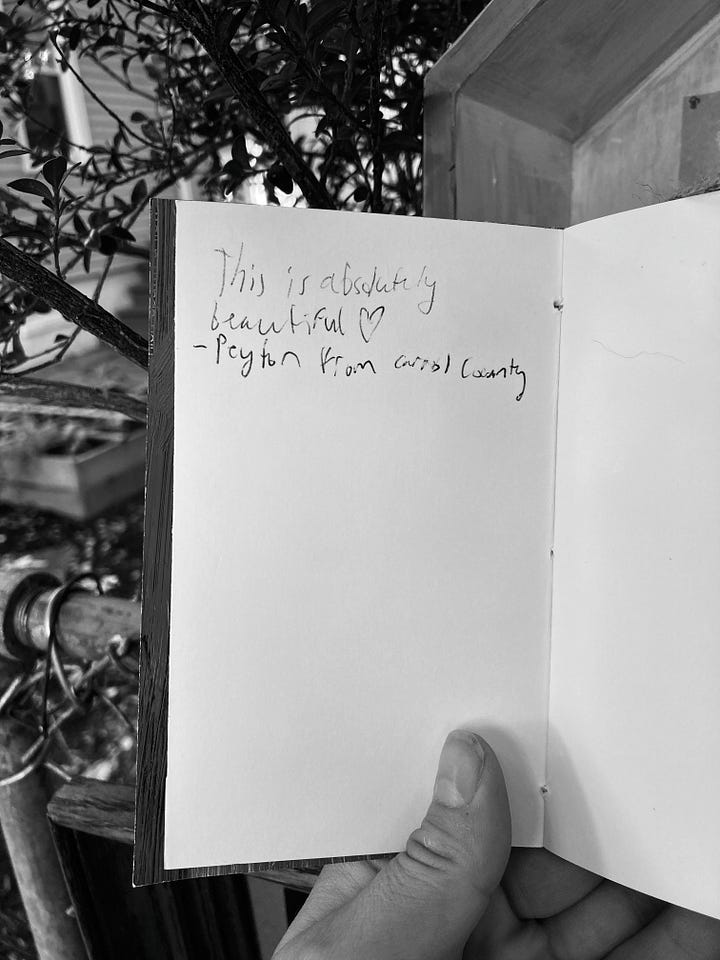 This is absolutely
beautiful ♡
- Peyton from carrol County